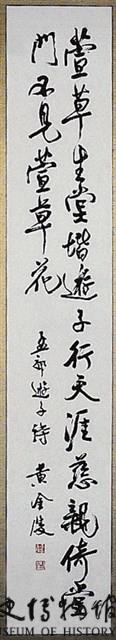 萱草生堂堦遊子行天涯慈親倚堂
門不見萱草花
孟郊遊子詩 黃金陵
史博物館
SEUM OF HISTORY